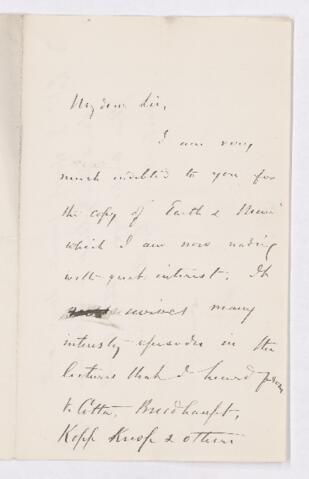 My dear Sir,
I am very
much indebted to you for
the copy of Earth &
which I am now reading
with great interest. It
revives many
interesting episodes in the
lectures that I heard from
v. Cotta, Breithaupt,
Kopp Knop & others